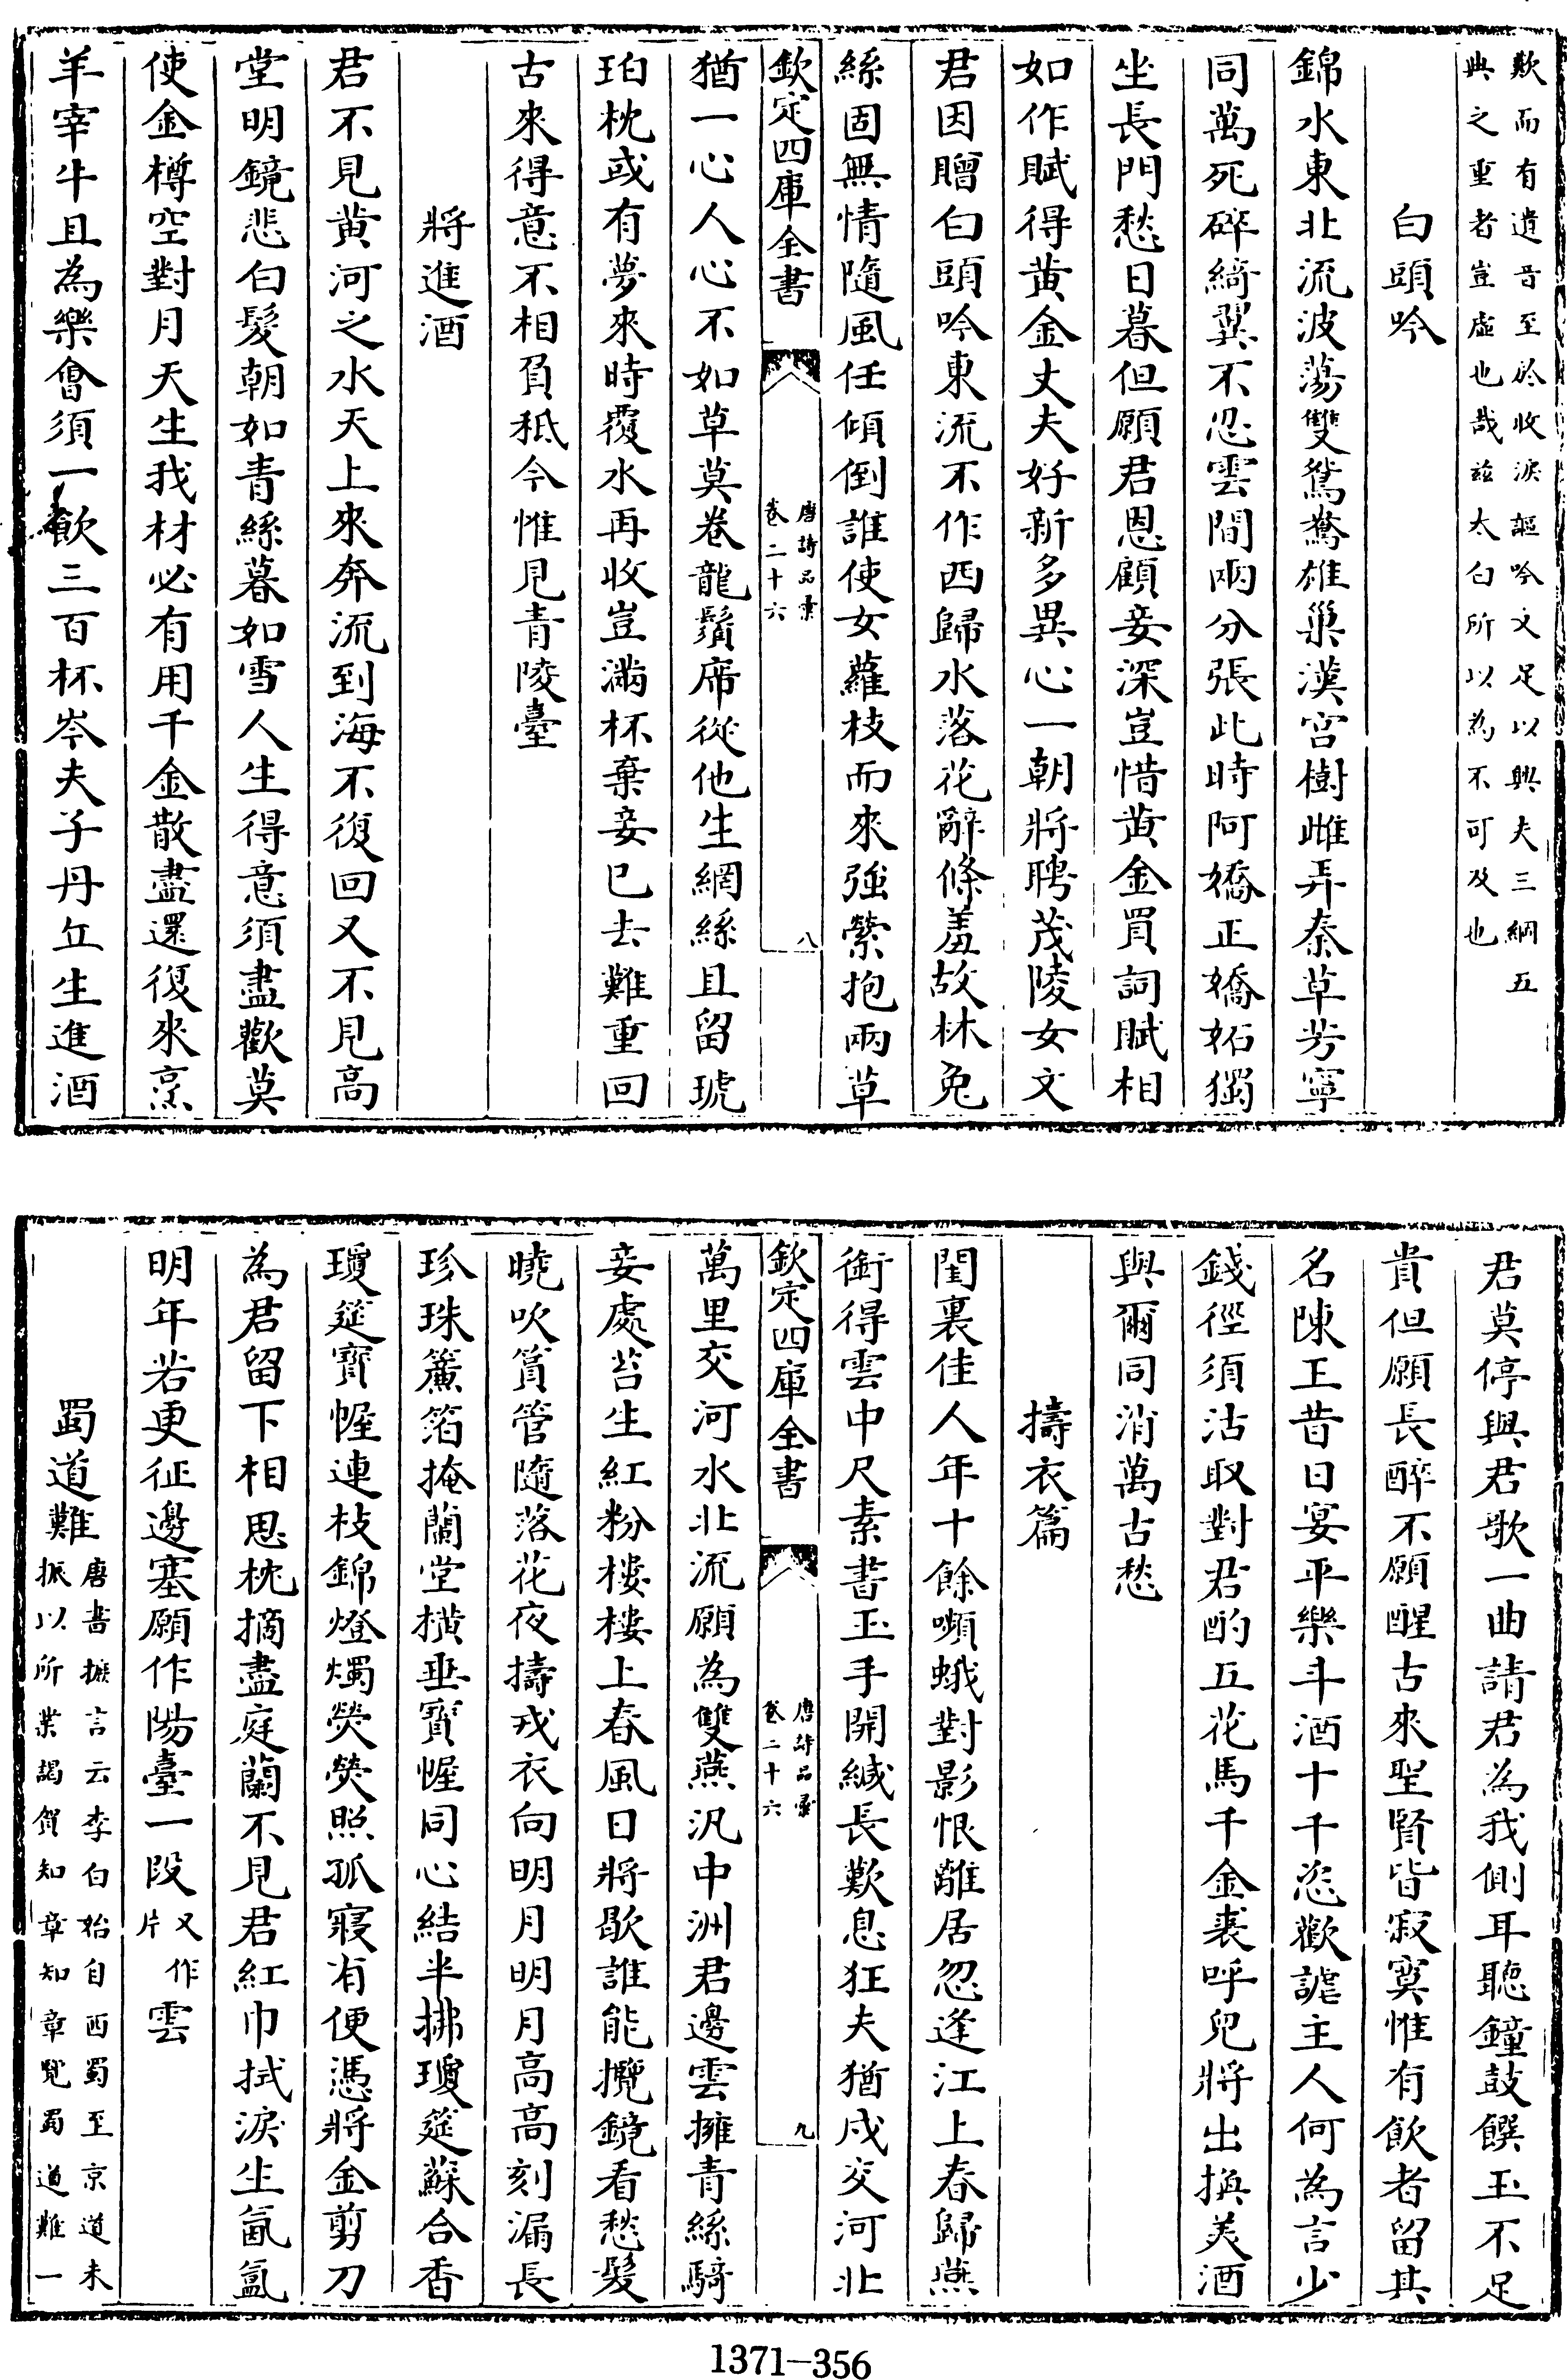 歎而有遺音至於收淚謳吟又足以興夫三綱五
典之重者豈虛也哉兹太白所以為不可及也
白頭吟
錦水東北流波蕩雙鴛鴦雄巢漢宮樹雌弄秦草芳寧
同萬死碎綺翼不忍雲間兩分張此時阿嬌正嬌妬獨
坐長門愁日暮但願君恩顧妾深豈惜黄金買詞賦相
如作賦得黄金丈夫好新多異心一朝將聘茂陵女文
君因贈白頭吟東流不作西歸水落花辭條羞故林兔
絲固無情隨風任傾倒誰使女蘿枝而來強縈抱兩草
欽定四庫全書
唐詩品彙
卷二十六
八
猶一心人心不如草莫卷龍鬚席從他生網絲且留琥
珀枕或有夢來時覆水再收豈滿杯棄妾已去難重回
古來得意不相負秪今惟見青陵臺
將進酒
君不見黄河之水天上來奔流到海不復回又不見高
堂明鏡悲白髮朝如青絲暮如雪人生得意須盡歡莫
使金樽空對月天生我材必有用千金散盡還復來烹
羊宰牛且為樂會須一飲三百杯岑夫子丹丘生進酒
君莫停與君歌一曲請君為我側耳聽鐘鼓饌玉不足
貴但願長醉不願醒古來聖賢皆寂寞惟有飲者留其
名陳王昔日宴平樂斗酒十千恣歡謔主人何為言少
錢徑須沽取對君酌五花馬千金裘呼兒將出換美酒
與爾同消萬古愁
擣衣篇
閨裏佳人年十餘嚬蛾對影恨離居忽逢江上春歸燕
銜得雲中尺素書玉手開緘長歎息狂夫猶戍交河北
欽定四庫全書
唐詩品彙
卷二十六
九
萬里交河水北流願為雙燕汎中洲君邊雲擁青絲騎
妾處苔生紅粉樓樓上春風日將歇誰能攬鏡看愁髮
曉吹篔管隨落花夜擣戎衣向明月明月高高刻漏長
珍珠簾箔掩蘭堂橫垂寳幄同心結半拂瓊筵蘇合香
瓊筵寳幄連枝錦燈燭熒熒照孤寢有便憑將金剪刀
為君留下相思枕摘盡庭蘭不見君紅巾拭淚生氤氲
明年若更征邊塞願作陽臺一段又作片雲
蜀道難唐書摭言云李白始自西蜀至京道未
振以所業謁賀知章知章覽蜀道難一
1371-356